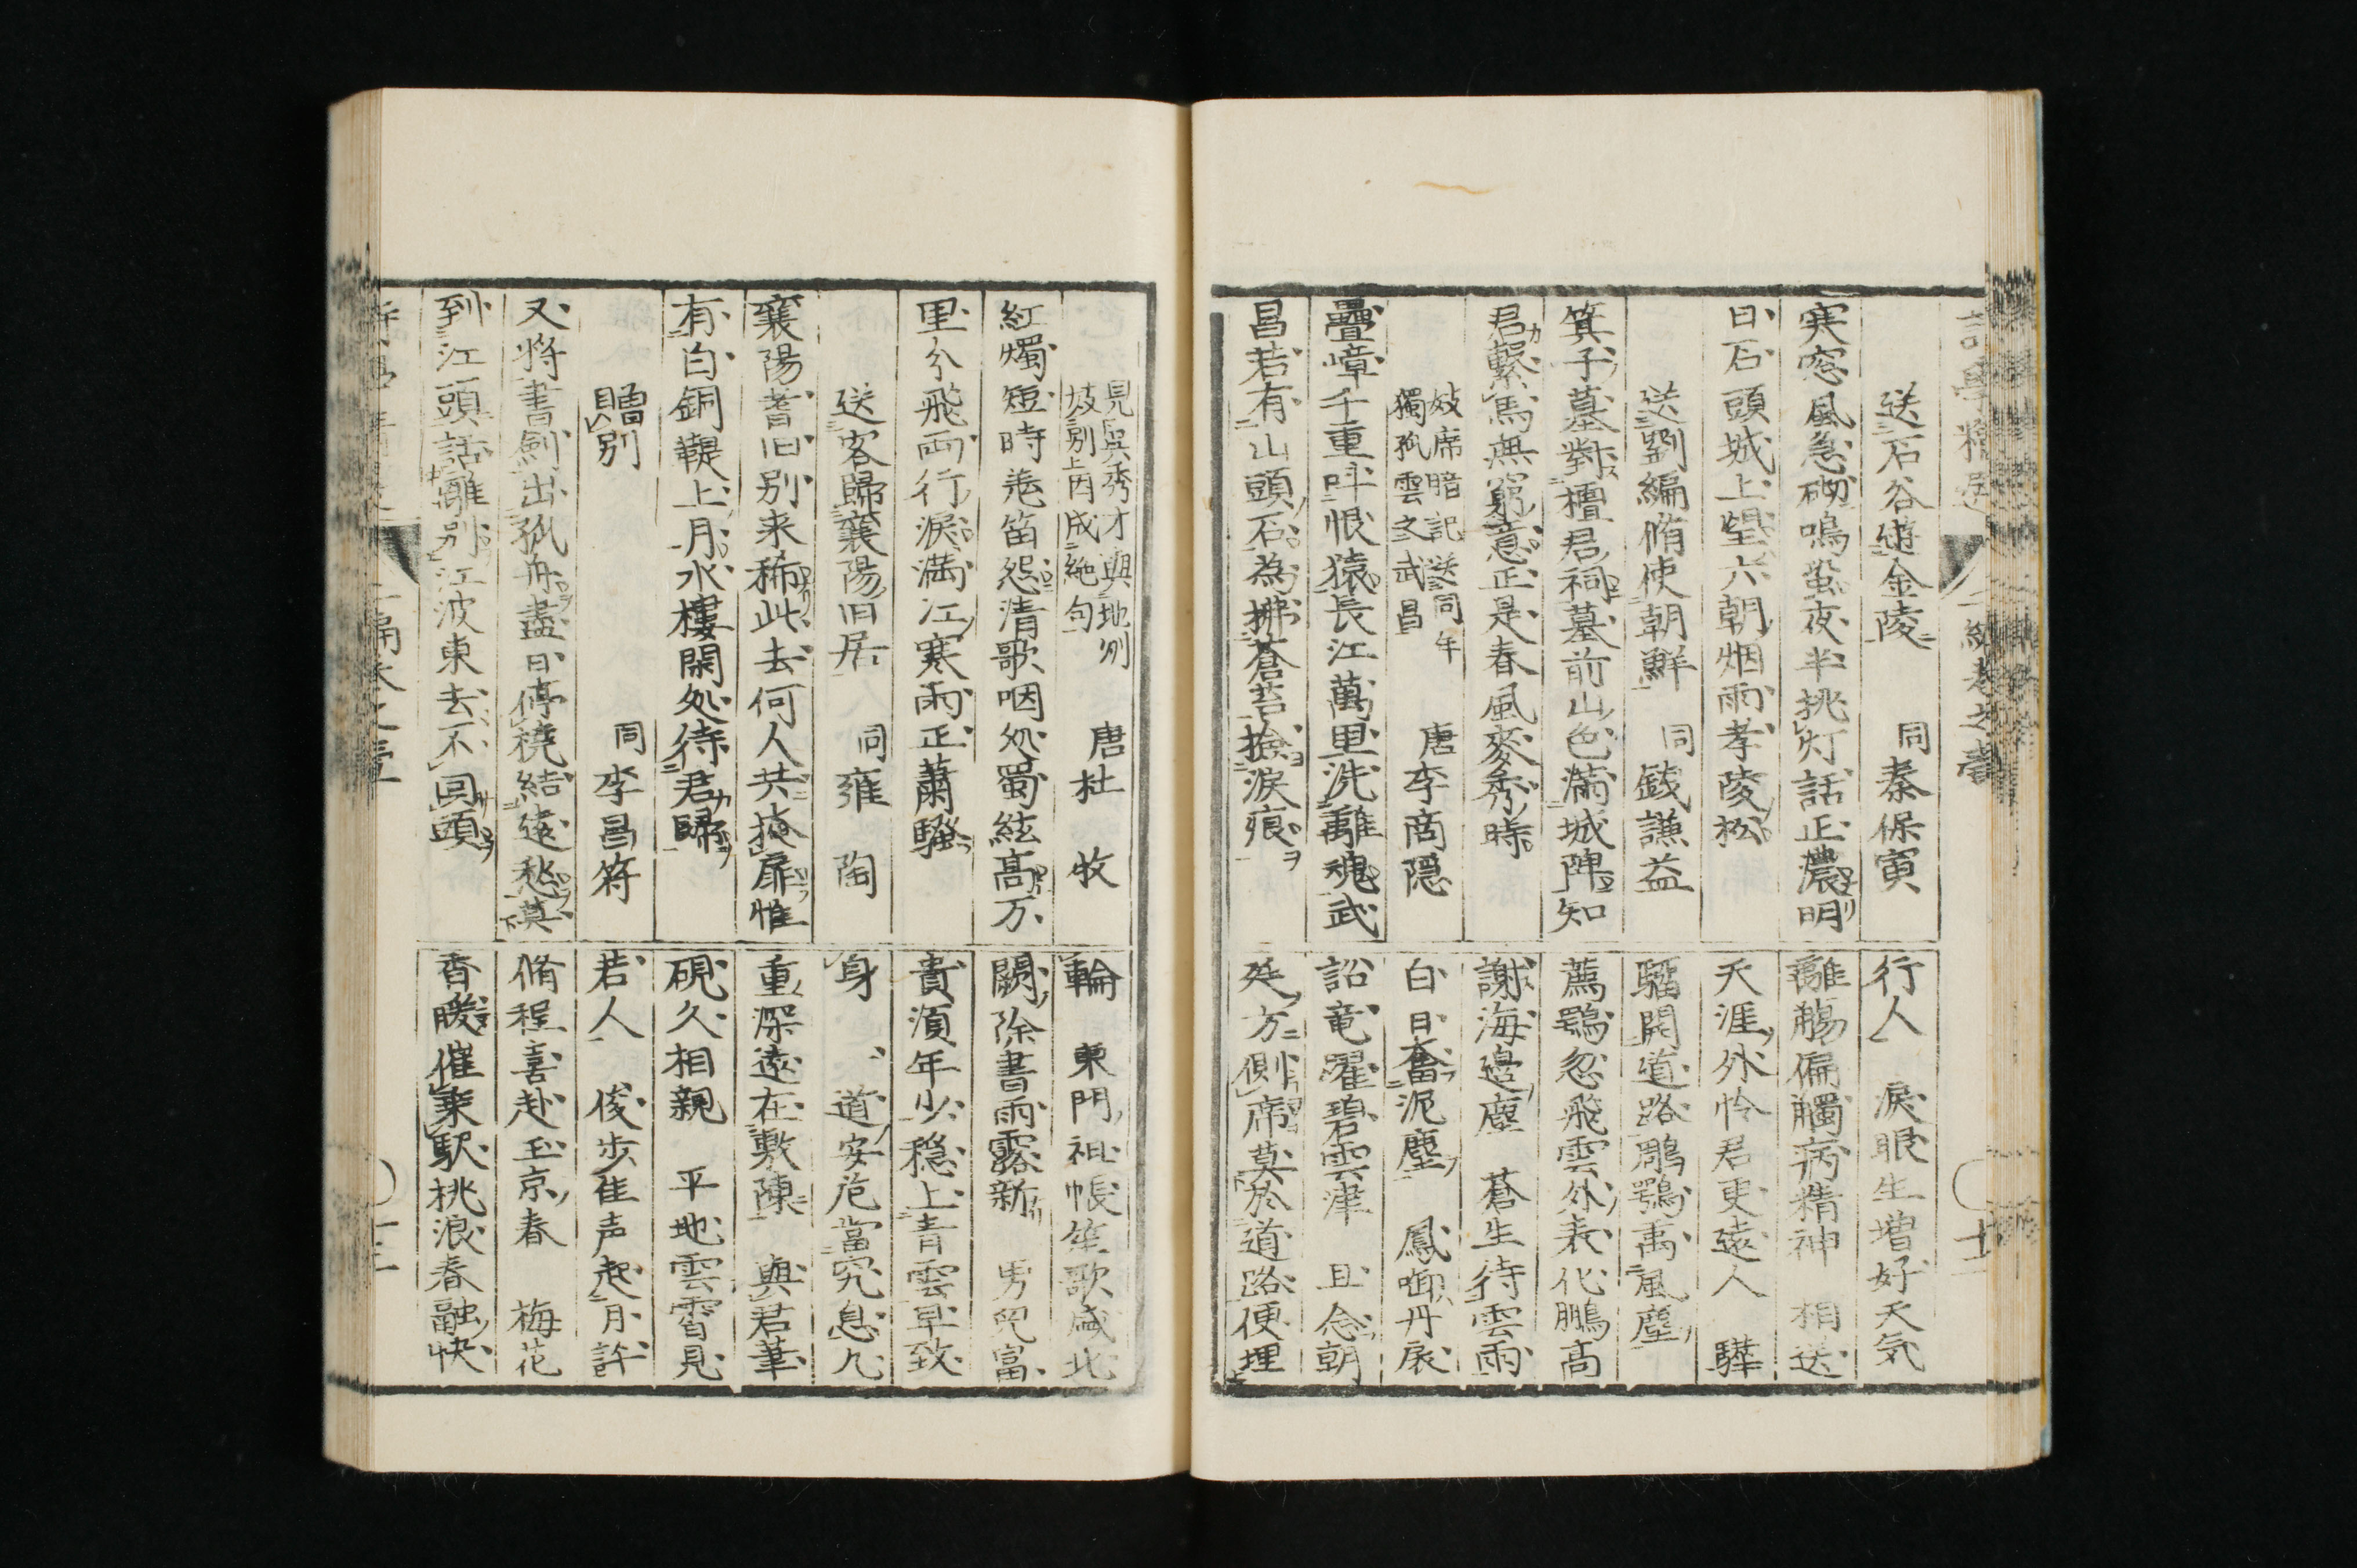 送石谷遊金陵　同秦保寅
寒窓風急砌鳴蛩夜半挑灯話正濃明
日石頭城上望六朝烟雨孝陵松
送劉編脩使朝鮮　同錢謙益
箕子墓對檀君祠墓前山色满城陴知
君繋馬無窮意正是春風麥秀時
妓席暗記送同年
獨孤雲之武昌　唐李商隠
疊嶂千重呌恨猿長江萬里洗離魂武
昌若有山頭石為拂蒼苔撿涙痕
行人　涙眼生増好天気
離觴偏觸病精神　相送
天涯外怜君更遠人　驊
騮開道路鵰鶚离風塵
薦鶚忽飛雲外表化鵬高
謝海邉塵　蒼生待雲雨
白日奮泥塵　鳳啣丹扆
詔竜躍碧雲津　且念朝
廷方側席莫於道路便埋
見吳秀才與池
妓別上因成絶句　唐杜牧
紅燭短時羗笛怨清歌咽処蜀絃高万
里分飛両行涙満江寒雨正蕭騷
送客歸襄陽旧居　同雍陶
襄陽耆旧別来稀此去何人共掩扉惟
有白銅鞮上月水樓閑処待君歸
贈別　同李昌符
又将書劍出孤舟盡日停橈結遠愁莫
到江頭話離別江波東去不囬頭
輪　東門祖帳笙歌咸北
闕除書雨露新　男児富
貴湏年少穏上青雲早致
身　道安危當究息凢
重深遠在敷陳　與君筆
硯久相親　平地雲霄見
若人　俊步隹声起月許
脩程喜赴玉京春　梅花
香暖催乗駅桃浪春融快